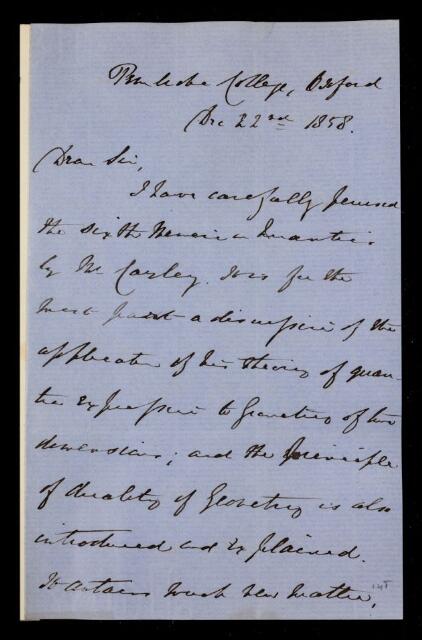 Pembroke College, Oxford
Dec 22nd 1858.
Dear Sir,
I have carefully perused
the sixth Memoir on Quantics
by Mr Cayley. It is for the
most part a discussion of the
application of his theory of quan-
tics expression to Geometry of two
dimensions; and the principle
of duality of Geometry is also
introduced and explained.
It contains much new matter,